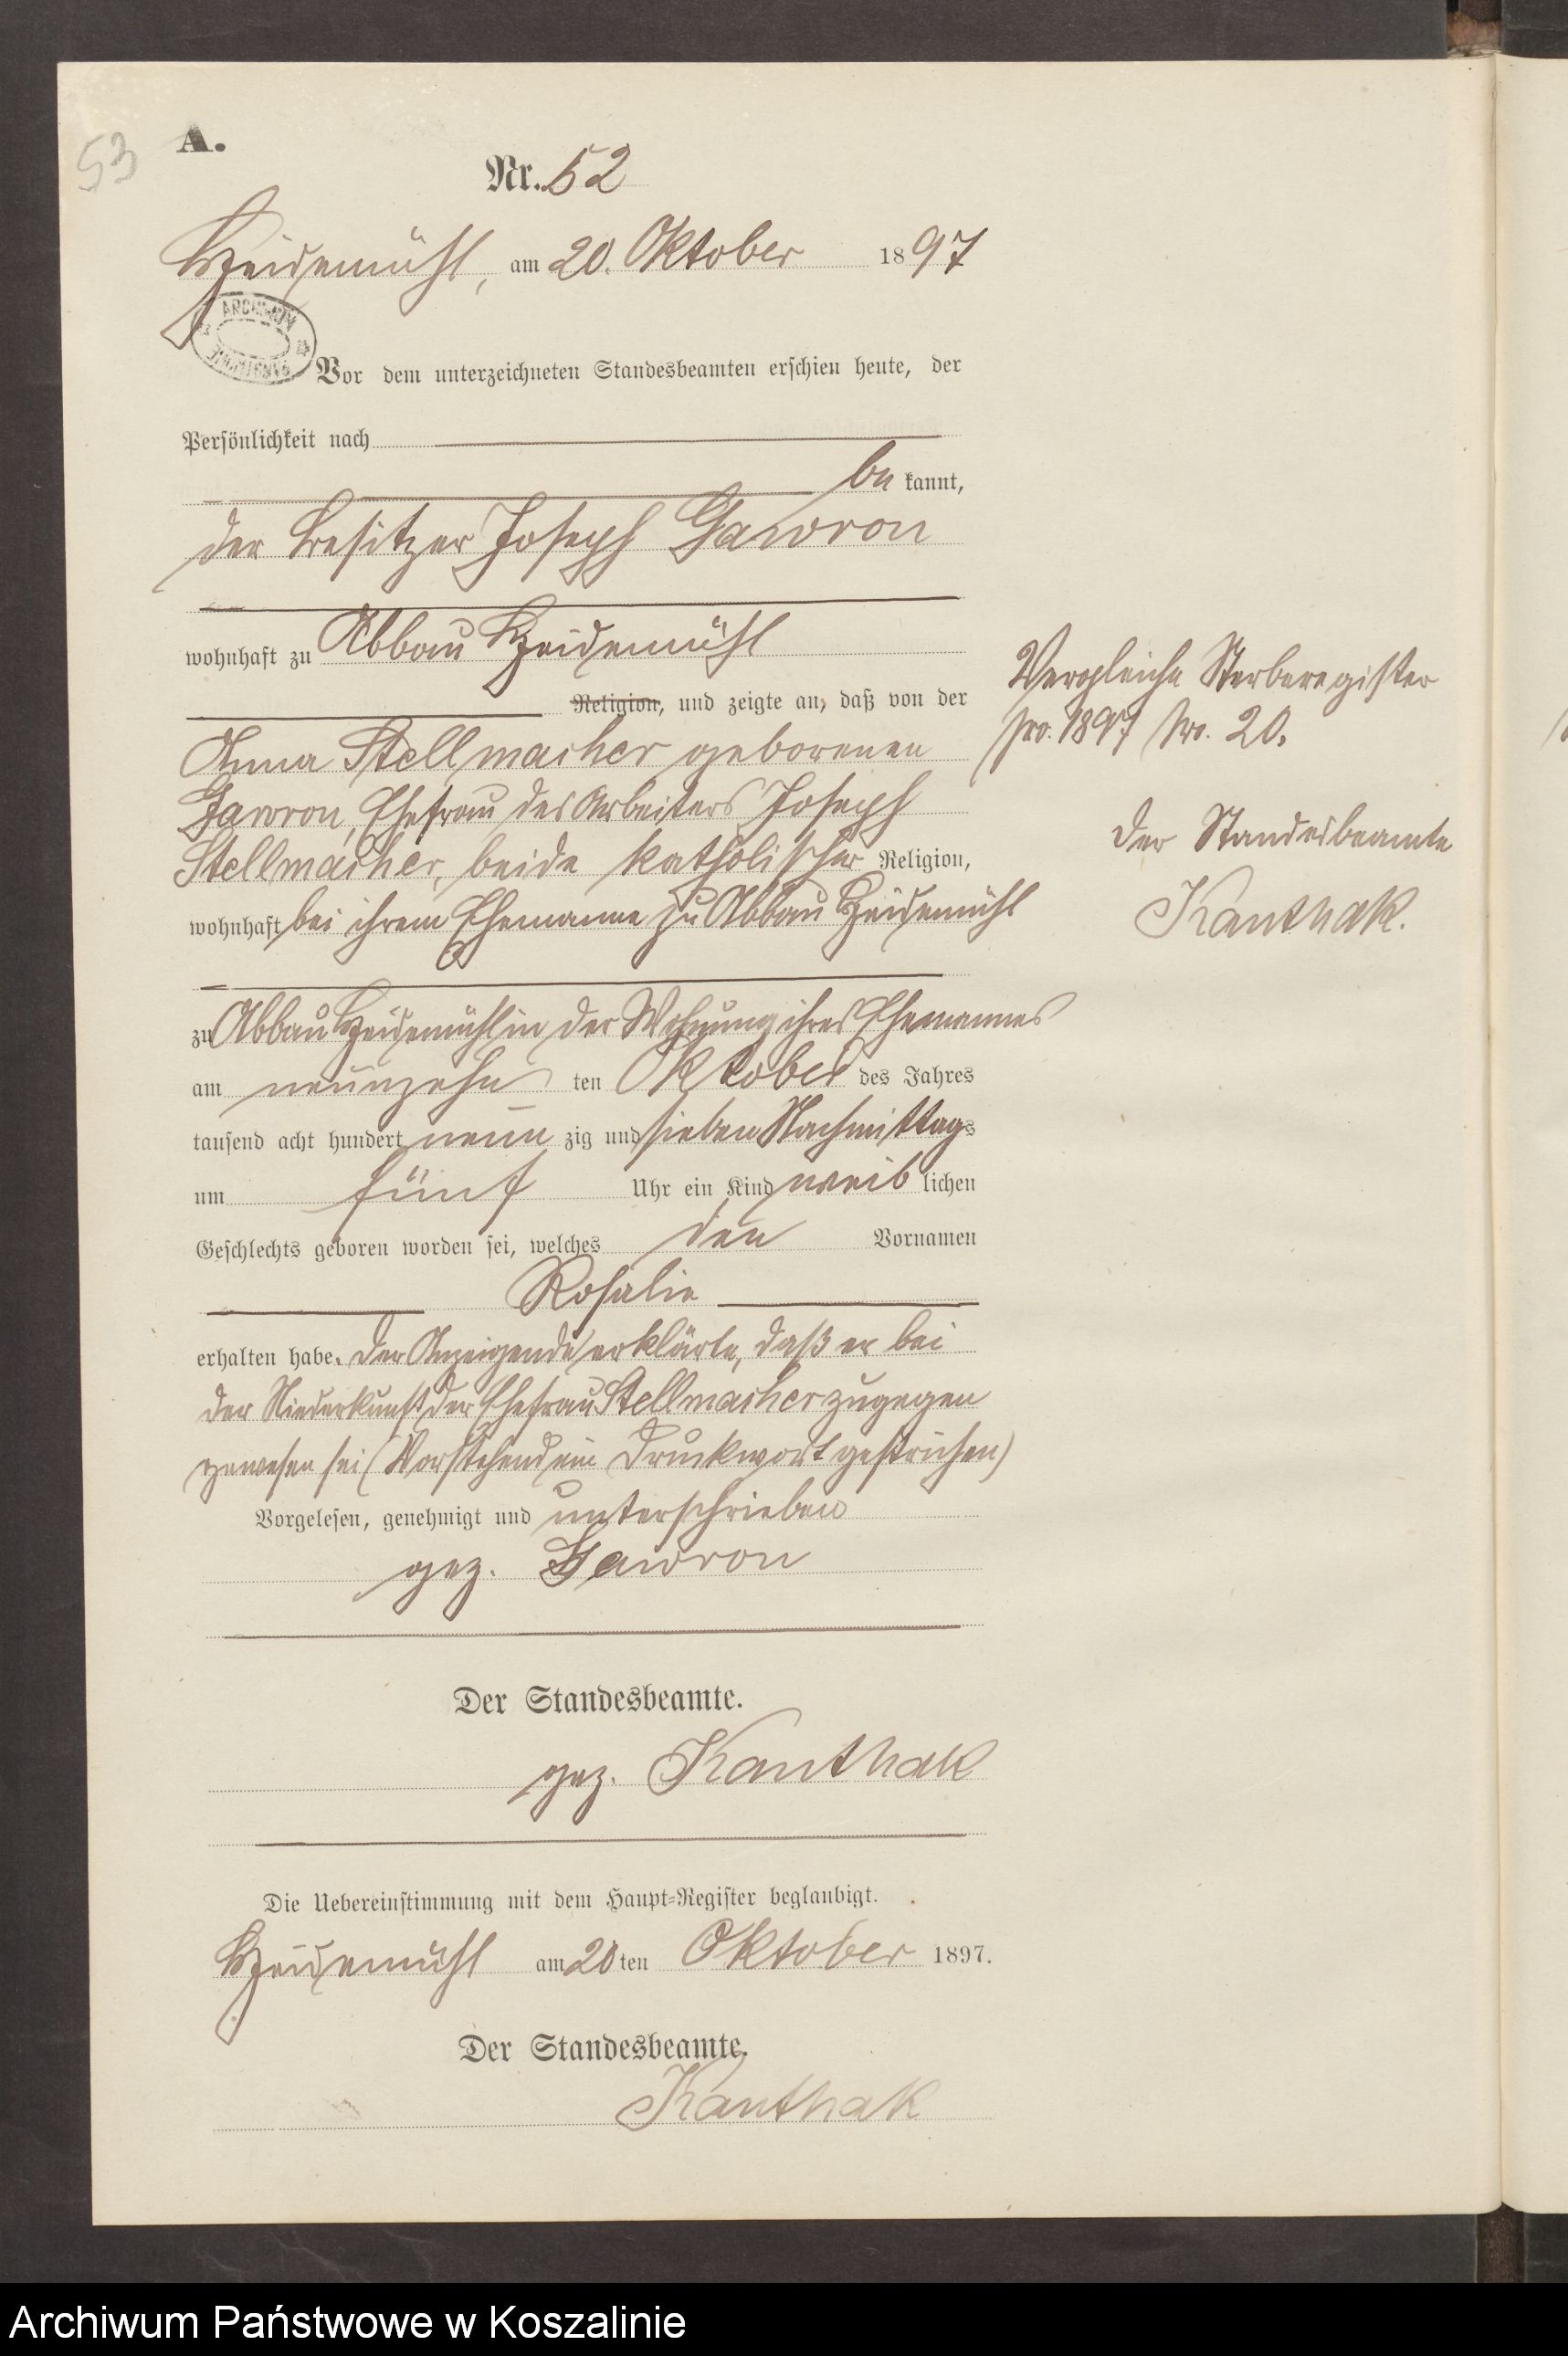 53
A.
Nr. 52
Heidemühl, am 20. Oktober 1897
ARCHIWUM
Vor dem unterzeichneten Standesbeamten erschien heute, der
Persönlichkeit nach
be kannt,
der Besitzer Joseph Gawron
wohnhaft zu Abbau Heidemühl
Religion, und zeigte an, daß von der
Anna Stellmacher geborenen
Gawron, Ehefrau des Arbeiters Joseph
Stellmacher, beide katholischer Religion,
wohnhaft bei ihrem Ehemanne zu Abbau Heidemühl
zu Abbau Heidemühl in der Wohnung ihres Ehemannes
am neunzehn ten Oktober des Jahres
tausend acht hundert neun zig und sieben Nachmittags
um fünf Uhr ein Kind weib lichen
Geschlechts geboren worden sei, welches den Vornamen
Rosalie
erhalten habe. Der Anzeigende erklärte, daß er bei
der Niederkunft der Ehefrau Stellmacher zugegen
gewesen sei (Vorstehend ein Druckwort gestrichen)
Vorgelesen, genehmigt und unterschrieben
gez. Gawron
Der Standesbeamte.
gez. Kanthak
Die Uebereinstimmung mit dem Haupt-Register beglaubigt.
Heidemühl am 20 ten Oktober 1897.
Der Standesbeamte.
Kanthak
Vergleiche Sterberegister
pro. 1897 No. 20.
Der Standesbeamte
Kanthak.
Archiwum Państwowe w Koszalinie